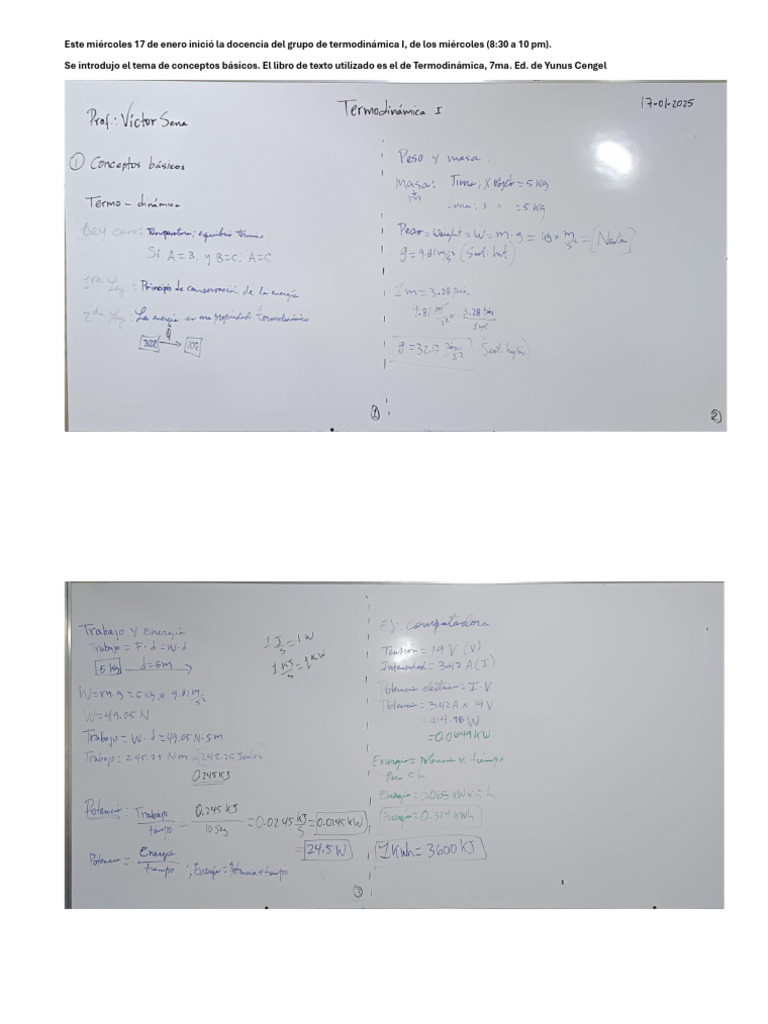 Este miércoles 17 de enero inició la docencia del grupo de termodinámica I, de los miércoles (8:30 a 10 pm).
Se introdujo el tema de conceptos básicos. El libro de texto utilizado es el de Termodinámica, 7ma. Ed. de Yunus Cengel
Prof.: Víctor Sena
Termodinámica I
17-01-2025
① Conceptos básicos
Termo - dinámica
Ley cero: Temperatura; equilibrio térmico
Si A=B, y B=C; A=C
1ra Ley: Principio de conservación de la energía
2da Ley: La energía es una propiedad termodinámica
Q
①
Peso y masa:
Masa: Tierra; X objeto = 5 Kg
m
Luna; x " = 5 Kg
Peso = Weight = W = m·g = Kg × m/s² = [Newton]
g = 9.81 m/s² (Sist. Int.)
1m = 3.28 pies
9.81 m/s² × 3.28 pies/1m
g = 32.17 pies/s² Sist. Inglés)
②
Trabajo y Energía
Trabajo = F·d = W·d
5 Kg d=5m
1 J/s = 1 W
1 KJ/s = 1 KW
W = m·g = 5 Kg × 9.81 m/s²
W = 49.05 N
Trabajo = W·d = 49.05 N·5m
Trabajo = 245.25 N·m = 245.25 Joules
0.245 KJ
Potencia: Trabajo/tiempo = 0.245 KJ/10 seg = 0.0245 KJ/s = 0.0245 KW
= 24.5 W
Potencia = Energía/tiempo ; Energía = Potencia × tiempo
③
Ej: Computadora
Tensión = 19 V (V)
Intensidad = 3.42 A (I)
Potencia eléctrica = I·V
Potencia = 3.42 A × 19 V
= 64.98 W
= 0.0649 KW
Energía = Potencia × tiempo
Para 5 h
Energía = 0.065 KW × 5 h
Energía = 0.324 KWh
1 KWh = 3600 KJ